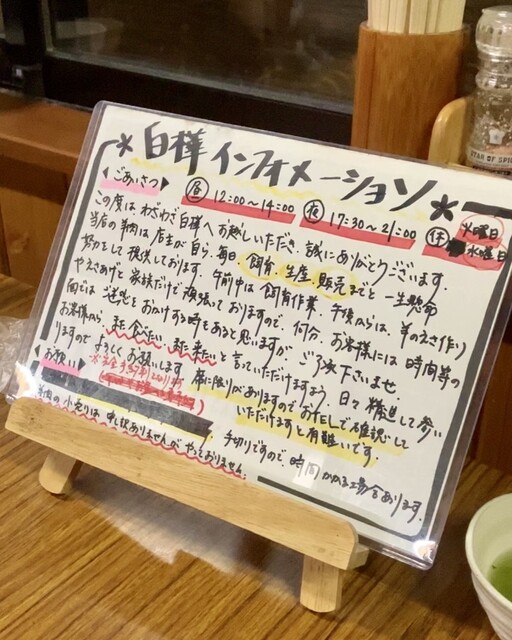 *白樺インフォメーション*
◀ごあいさつ▶ 昼 12:00~14:00 夜 17:30~21:00 休 火曜日
水曜日
この度は、わざわざ白樺へお越しいただき、誠にありがとうございます。
当店の羊肉は店主が自ら、毎日、飼育、生産、販売までと一生懸命
努力をして提供しております。午前中は飼育作業、午後からは、羊のえさ作り
やえさあげと家族だけで頑張っておりますので、何分、お客様には時間等の
面ではご迷惑をおかけする時もあると思いますが、ご了承下さいませ。
お客様から、また食べたい、また来たいと言っていただけますよう、日々精進して参い
りますのでよろしくお願いします
◀お願い▶
席に限りがありますのでお伝しで確認して
いただけますと有難いです。
羊肉の小売りは申し訳ありませんがやっておりません。
手切りですので、時間かかる場合あります。
STAR OF SPICE